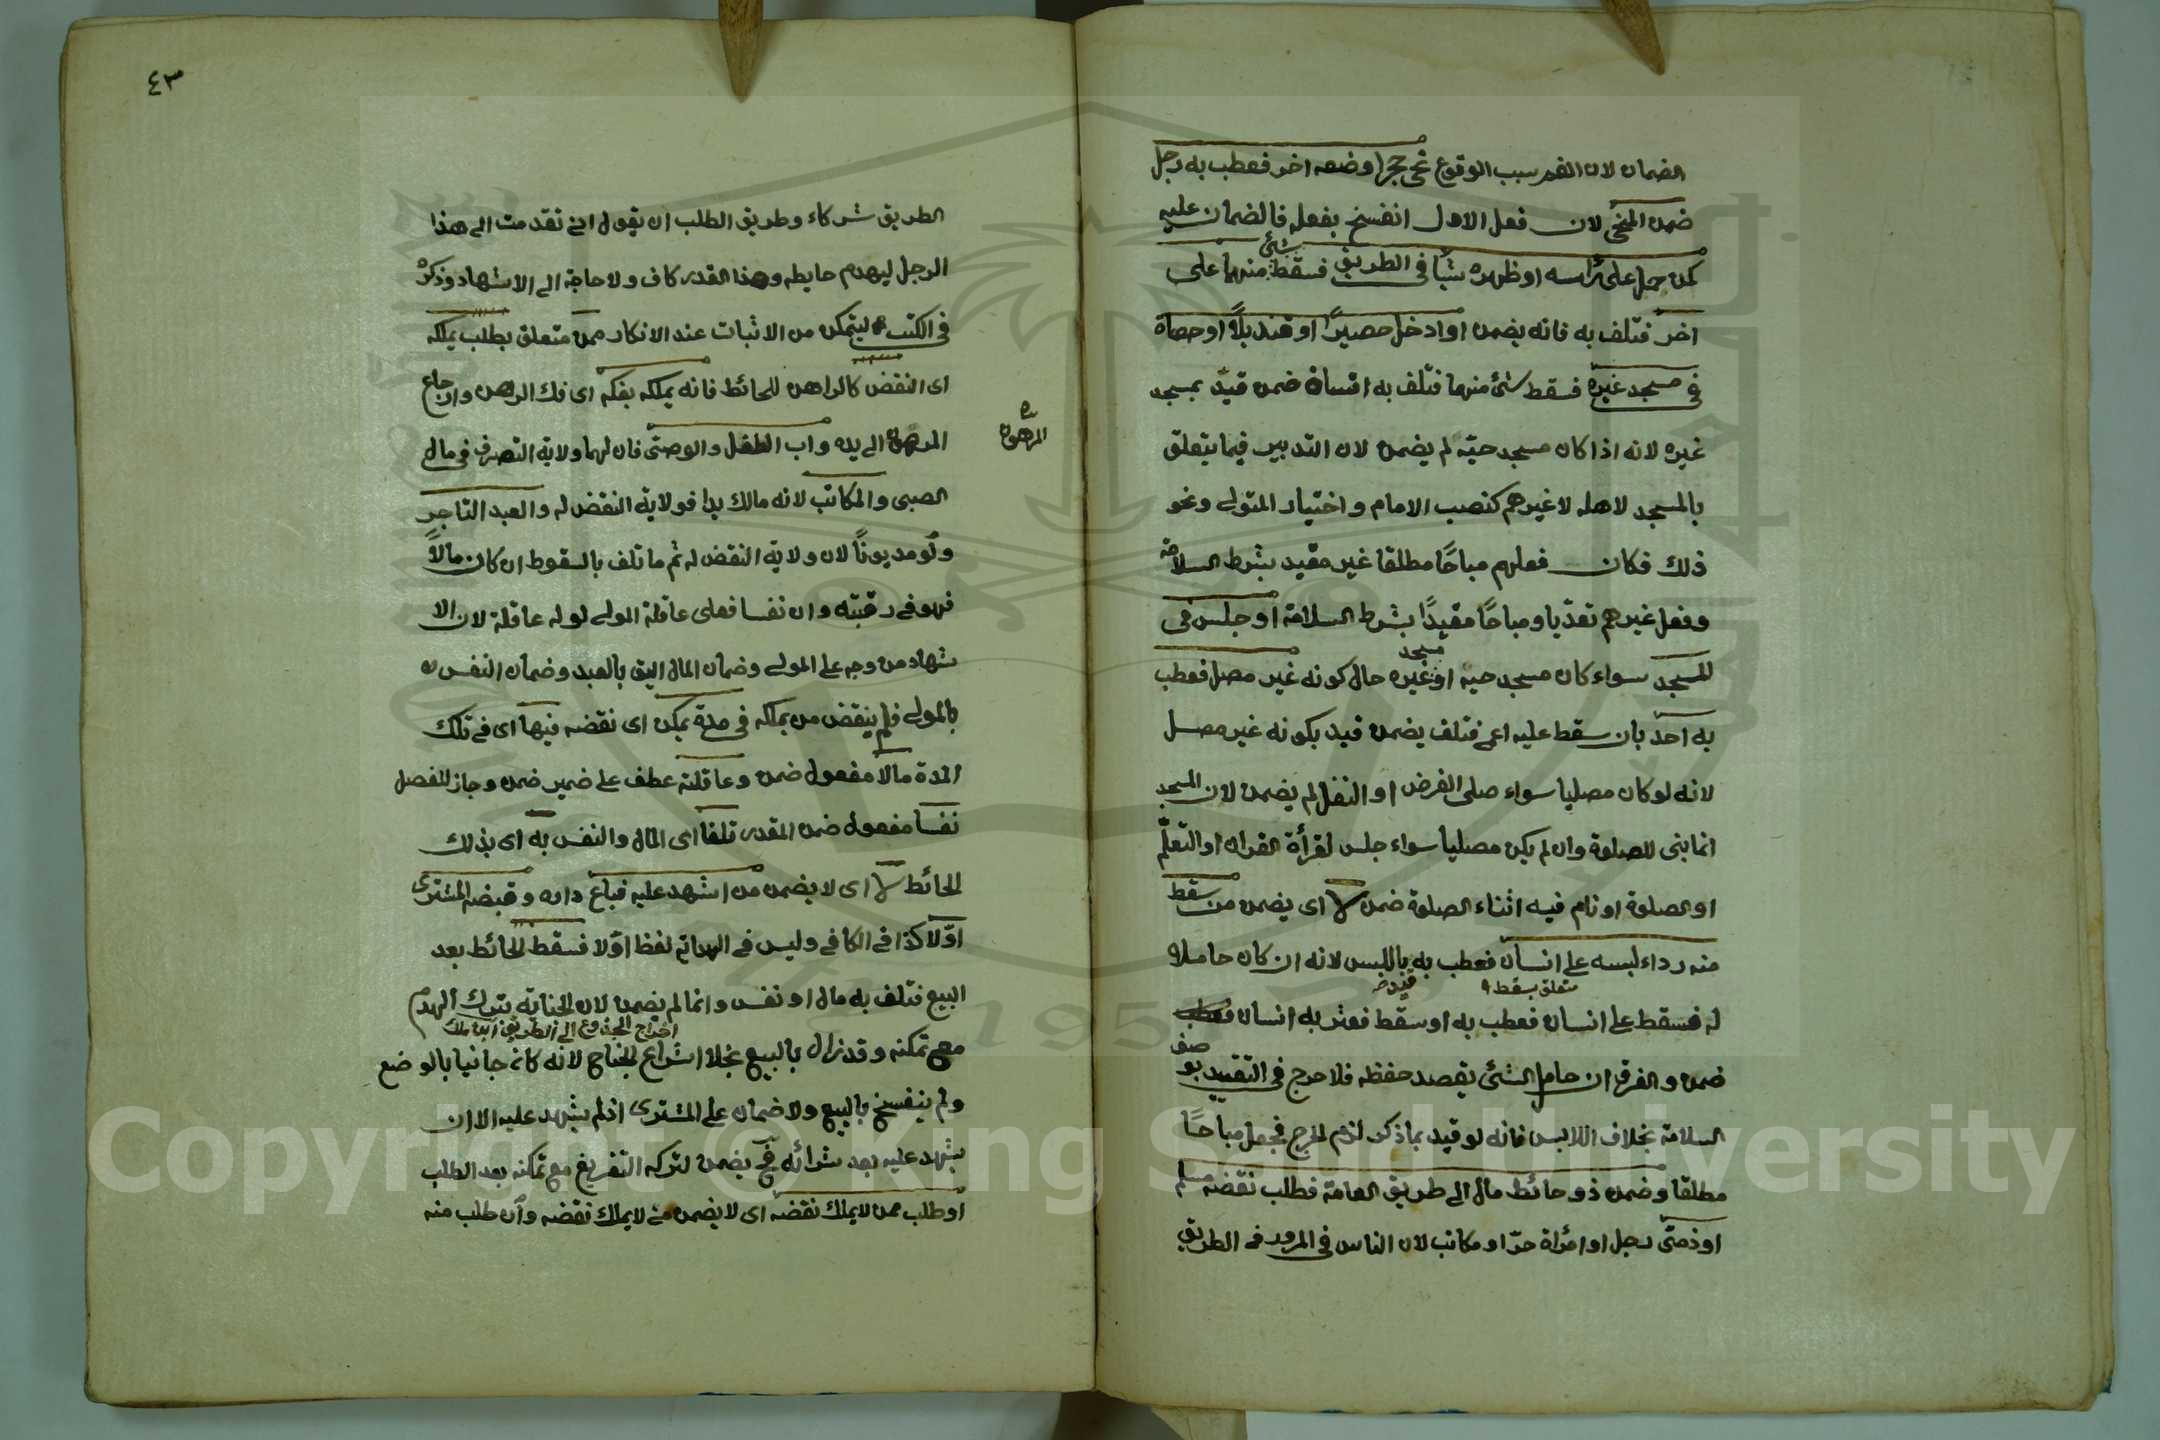 الضمان لان الغم سبب الوقوع نحى حجرا وضعه اخر فعطب به رجل
ضمن المنحى لان فعل الاول انفسخ بفعله فالضمان عليه
كمن حمل على رأسه او ظهره شيأ فى الطريق فسقط شئ منها على
اخر فتلف به فانه يضمن او ادخل حصيرًا او قنديلًا او حصاة
فى مسجد غيره فسقط شئ منها فتلف به انسان ضمن قيد بمسجد
غيره لانه اذا كان مسجد حيه لم يضمن لان التدبير فيما يتعلق
بالمسجد لاهله لا غيرهم كنصب الامام واختيار المتولى ونحو
ذلك فكان فعلهم مباحًا مطلقا غير مقيد بشرط السلامة
وفعل غيرهم تعديا ومباحًا مقيدًا بشرط السلامة او جلس فى
المسجد سواء كان مسجد حيه او مسجد غيره حال كونه غير مصل فعطب
به احد بان سقط عليه اعمى فتلف يضمن قيد بكونه غير مصل
لانه لو كان مصليا سواء صلى الفرض او النفل لم يضمن لان المسجد
انما بنى للصلوة وان لم يكن مصليا سواء جلس لقرأة القران او التعلّم
او الصلوة او نام فيه اثناء الصلوة ضمن لا اى يضمن من سقط
منه رداء لبسه على انسان فعطب به باللبس لانه ان كان حاملا
متعلق بسقط قيد
له فسقط على انسان فعطب به او سقط فعثر به انسان فعطب
ضمن والفرق ان حامل الشئ يقصد حفظه فلا حرج فى التقييد بوصف
السلامة بخلاف اللابس فانه لو قيد بما ذكر لزم الحرج فجعل مباحًا
مطلقا وضمن ذو حائط مال الى طريق العامة فطلب نقضه مسلم
او ذمى رجل او امرأة حرّ او مكاتب لان الناس فى المرور فى الطريق
٤٣
الطريق شركاء وطريق الطلب ان يقول انى تقدمت الى هذا
الرجل ليهدم حايطه وهذا القدر كاف ولا حاجة الى الاشهاد وذكره
فى الكتب ليتمكن من الاثبات عند الانكار ممن متعلق بطلب يملكه
اى النقض كالراهن للحائط فانه يملكه بفكه اى فك الرهن وارجاع
المرهون الى يده واب الطفل والوصى فان لهما ولاية التصرف فى مال
المرهون
الصبى والمكاتب لانه مالك يدا فولاية النقض له والعبد التاجر
ولو مديونًا لان ولاية النقض له ثم ما تلف بالسقوط ان كان مالًا
فهو فى رقبته وان نفسا فعلى عاقلة المولى لو له عاقلة لان الا
شهاد من وجه على المولى وضمان المال اليق بالعبد وضمان النفس
بالمولى فلم ينقض من يملكه فى مدة يمكن اى نقضه فيها اى فى تلك
المدة مالا مفعول ضمن وعاقلته عطف على ضمير ضمن وجاز للفصل
نفسا مفعول ضمن المقدر تلفا اى المال والنفس به اى بذلك
الحائط لا اى لا يضمن من اشهد عليه فباع داره وقبضه المشترى
اولا كذا فى الكافى وليس فى الهداية لفظ اولا فسقط الحائط بعد
البيع فتلف به مال او نفس وانما لم يضمن لان الجناية بترك الهدم
اخراج الجذوع الى الطريق
مع تمكنه وقد زال بالبيع بخلاف اشراع الجناح لانه كان جانيا بالوضع
ولم ينفسخ بالبيع ولا ضمان على المشترى اذ لم يشهد عليه الا ان
يشهد عليه بعد شرائه فح يضمن لتركه التفريغ مع تمكنه بعد الطلب
او طلب ممن لا يملك نقضه اى لا يضمن من لا يملك نقضه وان طلب منه